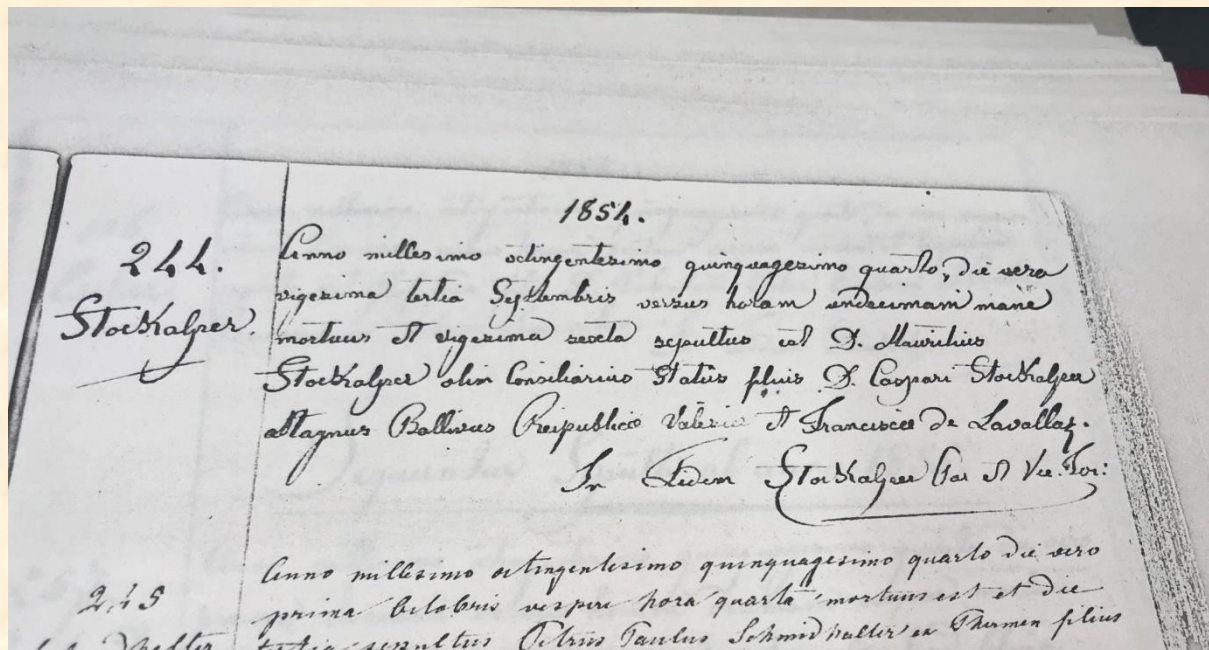 1854.
244.
Stockalper.
Anno millesimo octingentesimo quinquagesimo quarto, die vero
vigesima tertia Septembris versus horam undecimam mane
mortuus et vigesima sexta sepultus est D. Mauritius
Stockalper olim Consiliarius Status filius D. Caspari Stockalper
Magnus Ballivus Reipublicæ Valesiæ et Franciscæ de Lavallaz.
In Fidem Stockalper Par et Vic. For:
245
Anno millesimo octingentesimo quinquagesimo quarto die vero
prima Octobris vespere hora quarta mortuus est et die
tertia sepultus Petrus Paulus Schmidhalter ex Thermen filius